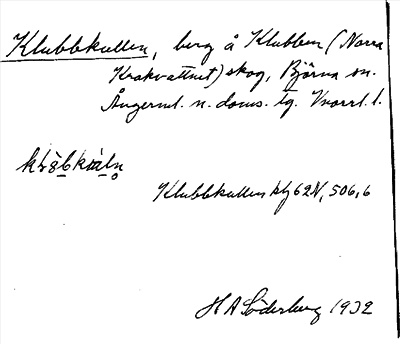 Klubbkullen, berg å Klubben (Norra
Krokvattnet) skog, Björna sn.
Ångerml. n. doms. tg. Vnorrl. l.
Klubbkullen blj 62N, 506,6
H A Söderberg 1932